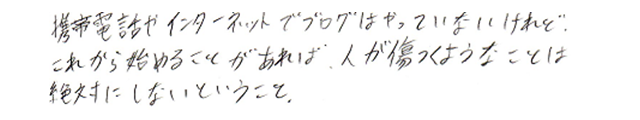 携帯電話やインターネットでブログはやっていないけれど、
これから始めることがあれば、人が傷つくようなことは
絶対にしないということ。